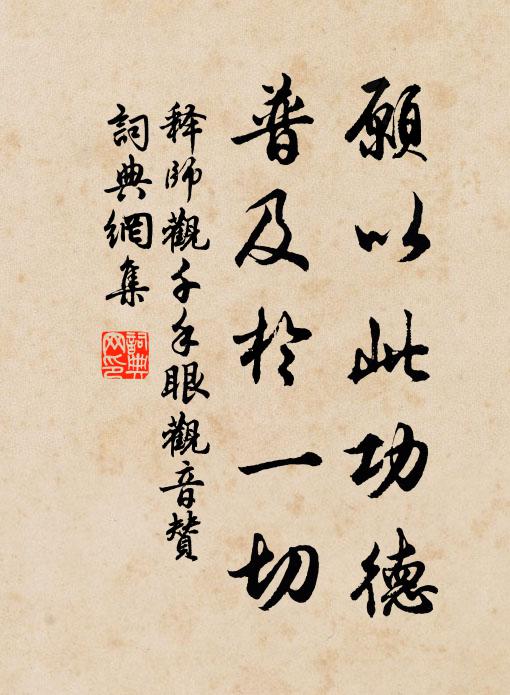 願以此功德
普及於一切
释師觀千手眼觀音贊
詞典網集
詞典网印